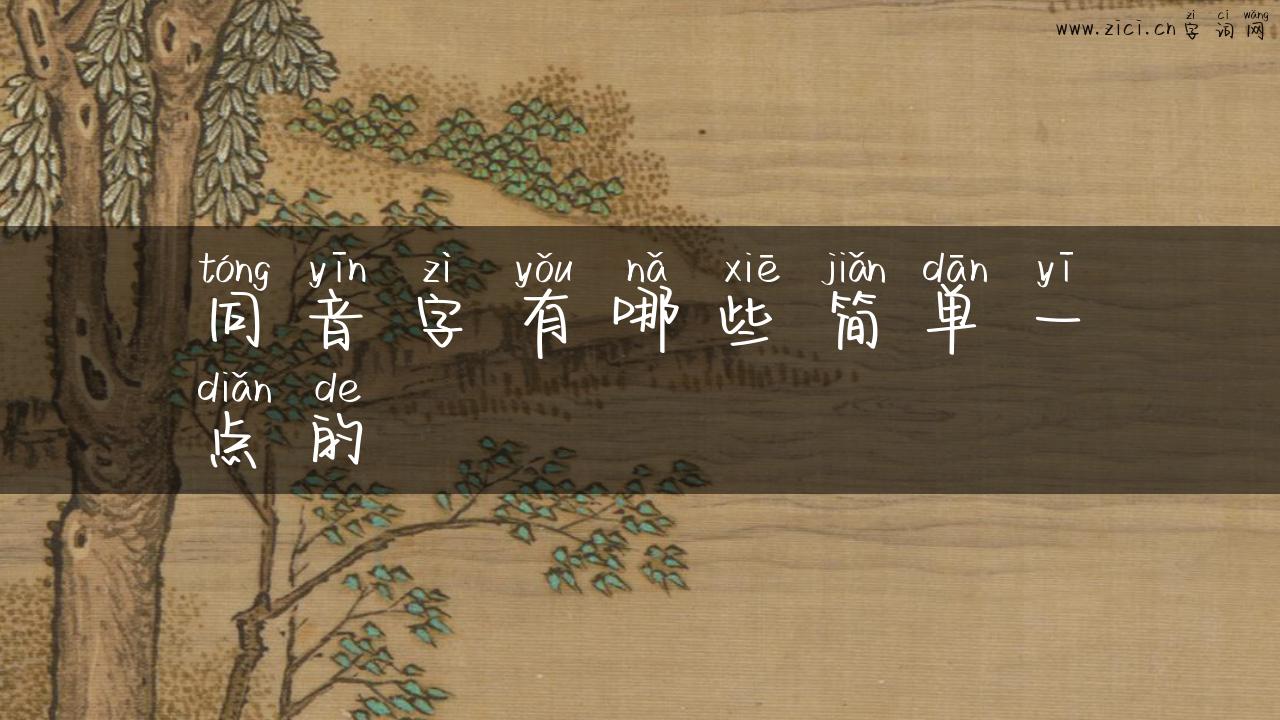 zì cí wǎng
www.zici.cn 字词网
tóng yīn zì yǒu nǎ xiē jiǎn dān yī
同音字有哪些简单一
diǎn de
点的